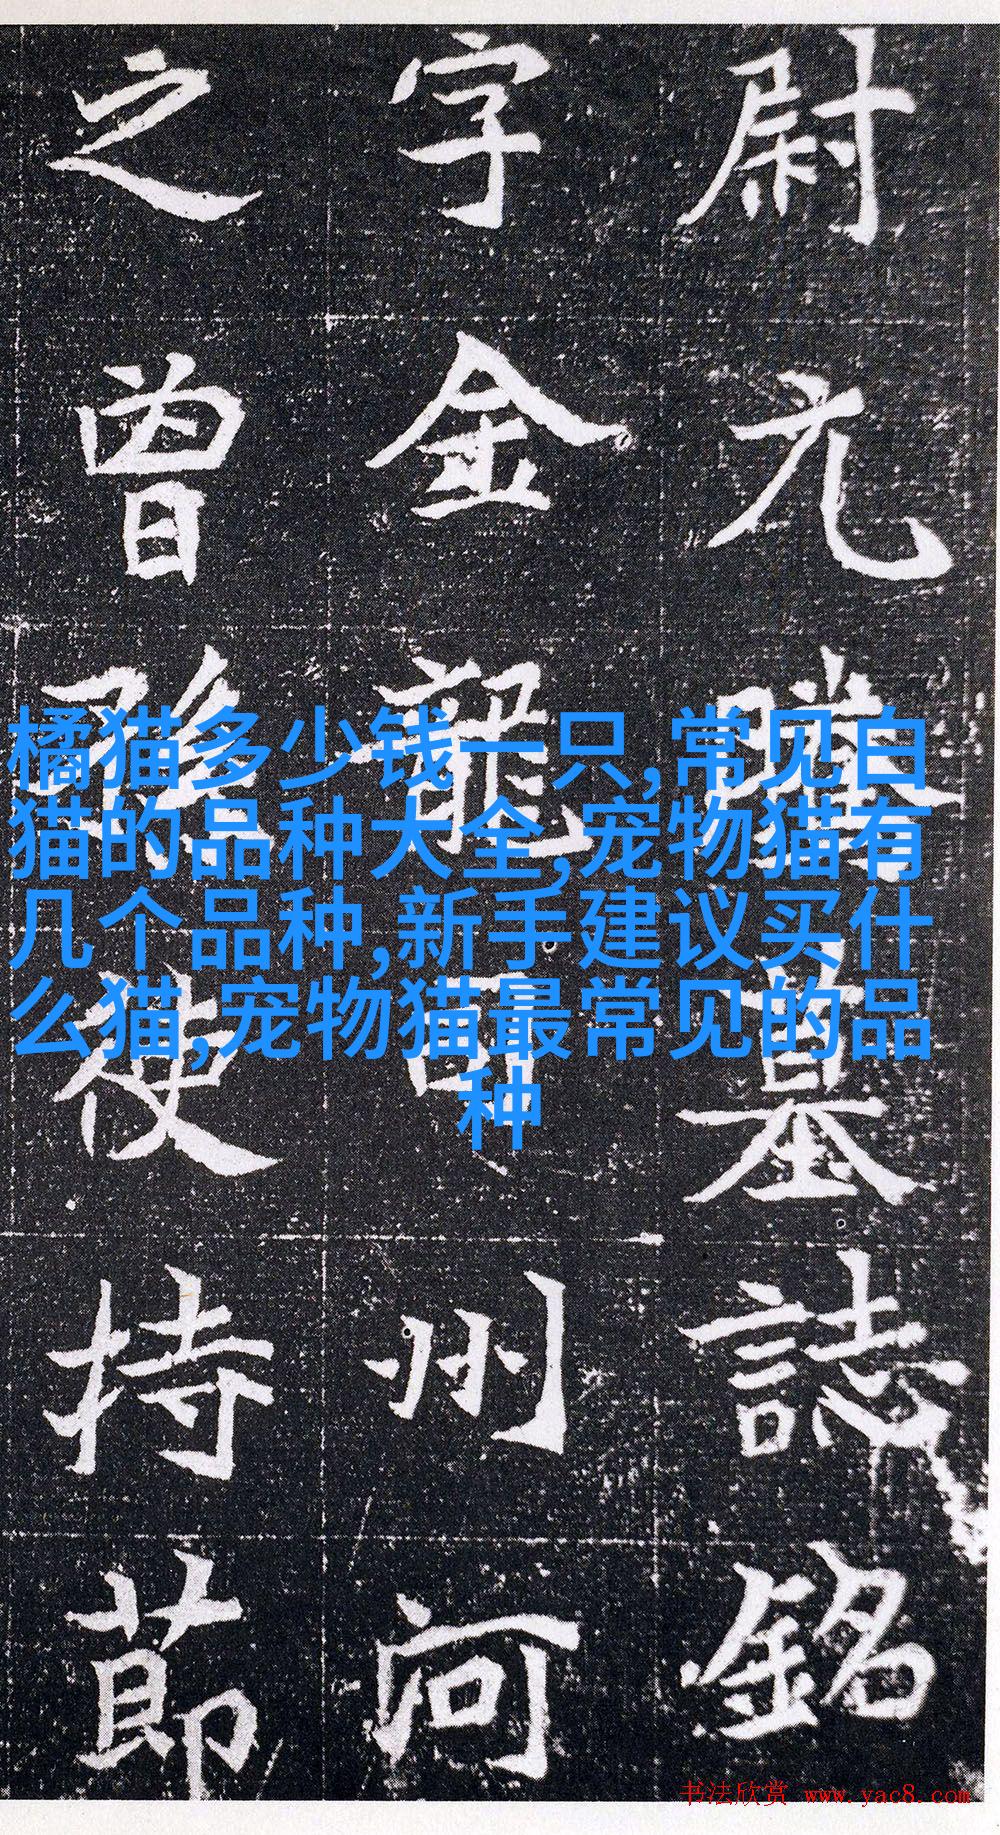 尉元騰墓誌銘
字金龍司州河
之曾孫使持節
橘猫多少钱一只,常见白
猫的品种大全,宠物猫有
几个品种,新手建议买什
么猫,宠物猫最常见的品
种
书法欣赏 www.yac8.com